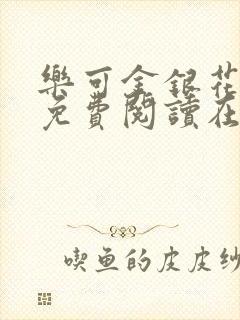 樂可金銀花
免費閱讀在
喫魚的皮皮紗